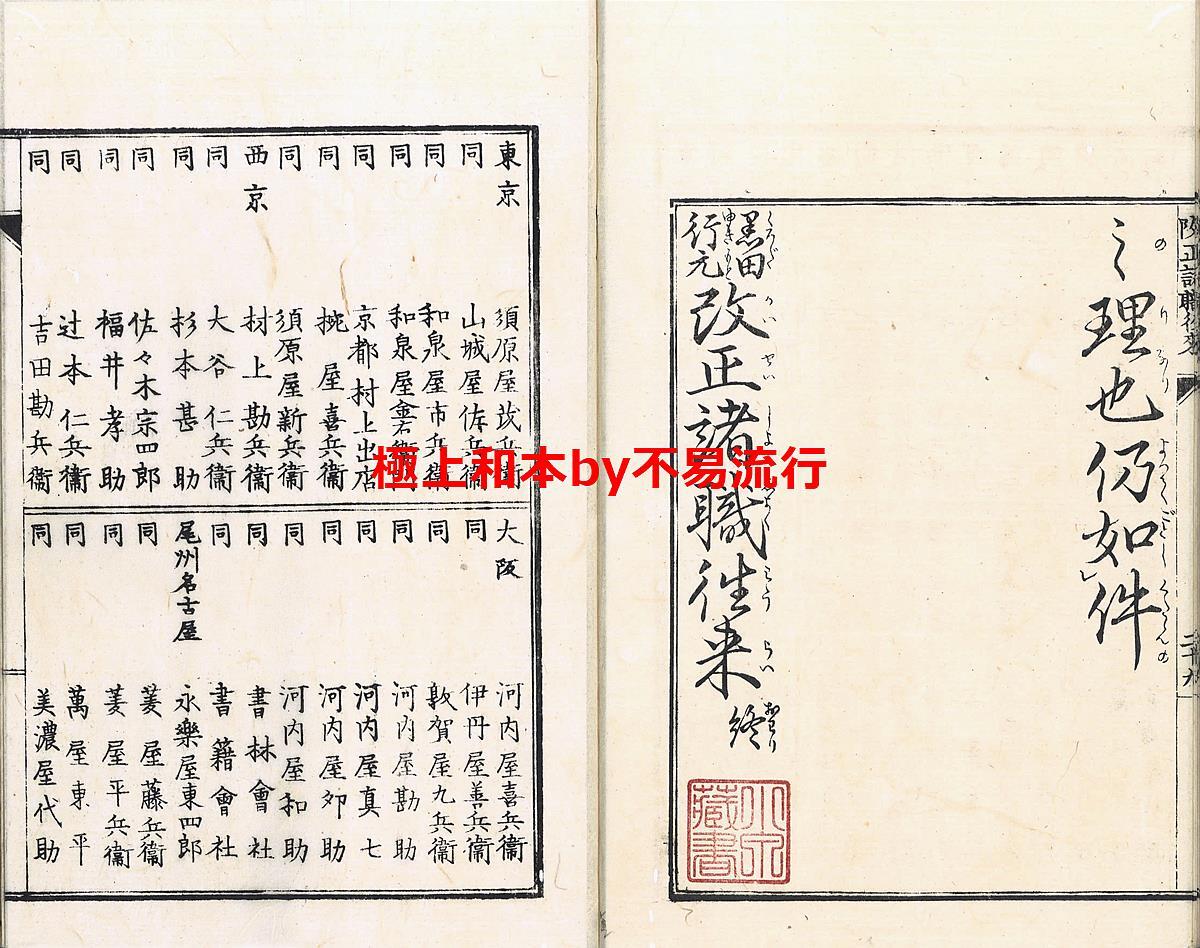 之理也仍如件
黒田行元 改正諸職往来 終
藏書
東京 須原屋茂兵衞
同 山城屋佐兵衞
同 和泉屋市兵衞
同 和泉屋金右衞門
同 京都村上出店
同 椀屋喜兵衞
同 須原屋新兵衞
西京 村上勘兵衞
同 大谷仁兵衞
同 杉本甚助
同 佐々木宗四郎
同 福井孝助
同 辻本仁兵衞
同 吉田勘兵衞
大阪 河内屋喜兵衞
同 伊丹屋善兵衞
同 敦賀屋九兵衞
同 河内屋勘助
同 河内屋真七
同 河内屋卯助
同 河内屋和助
同 書林會社
同 書籍會社
尾州名古屋 永樂屋東四郎
同 菱屋藤兵衞
同 菱屋平兵衞
同 萬屋東平
同 美濃屋代助
極上和本by不易流行